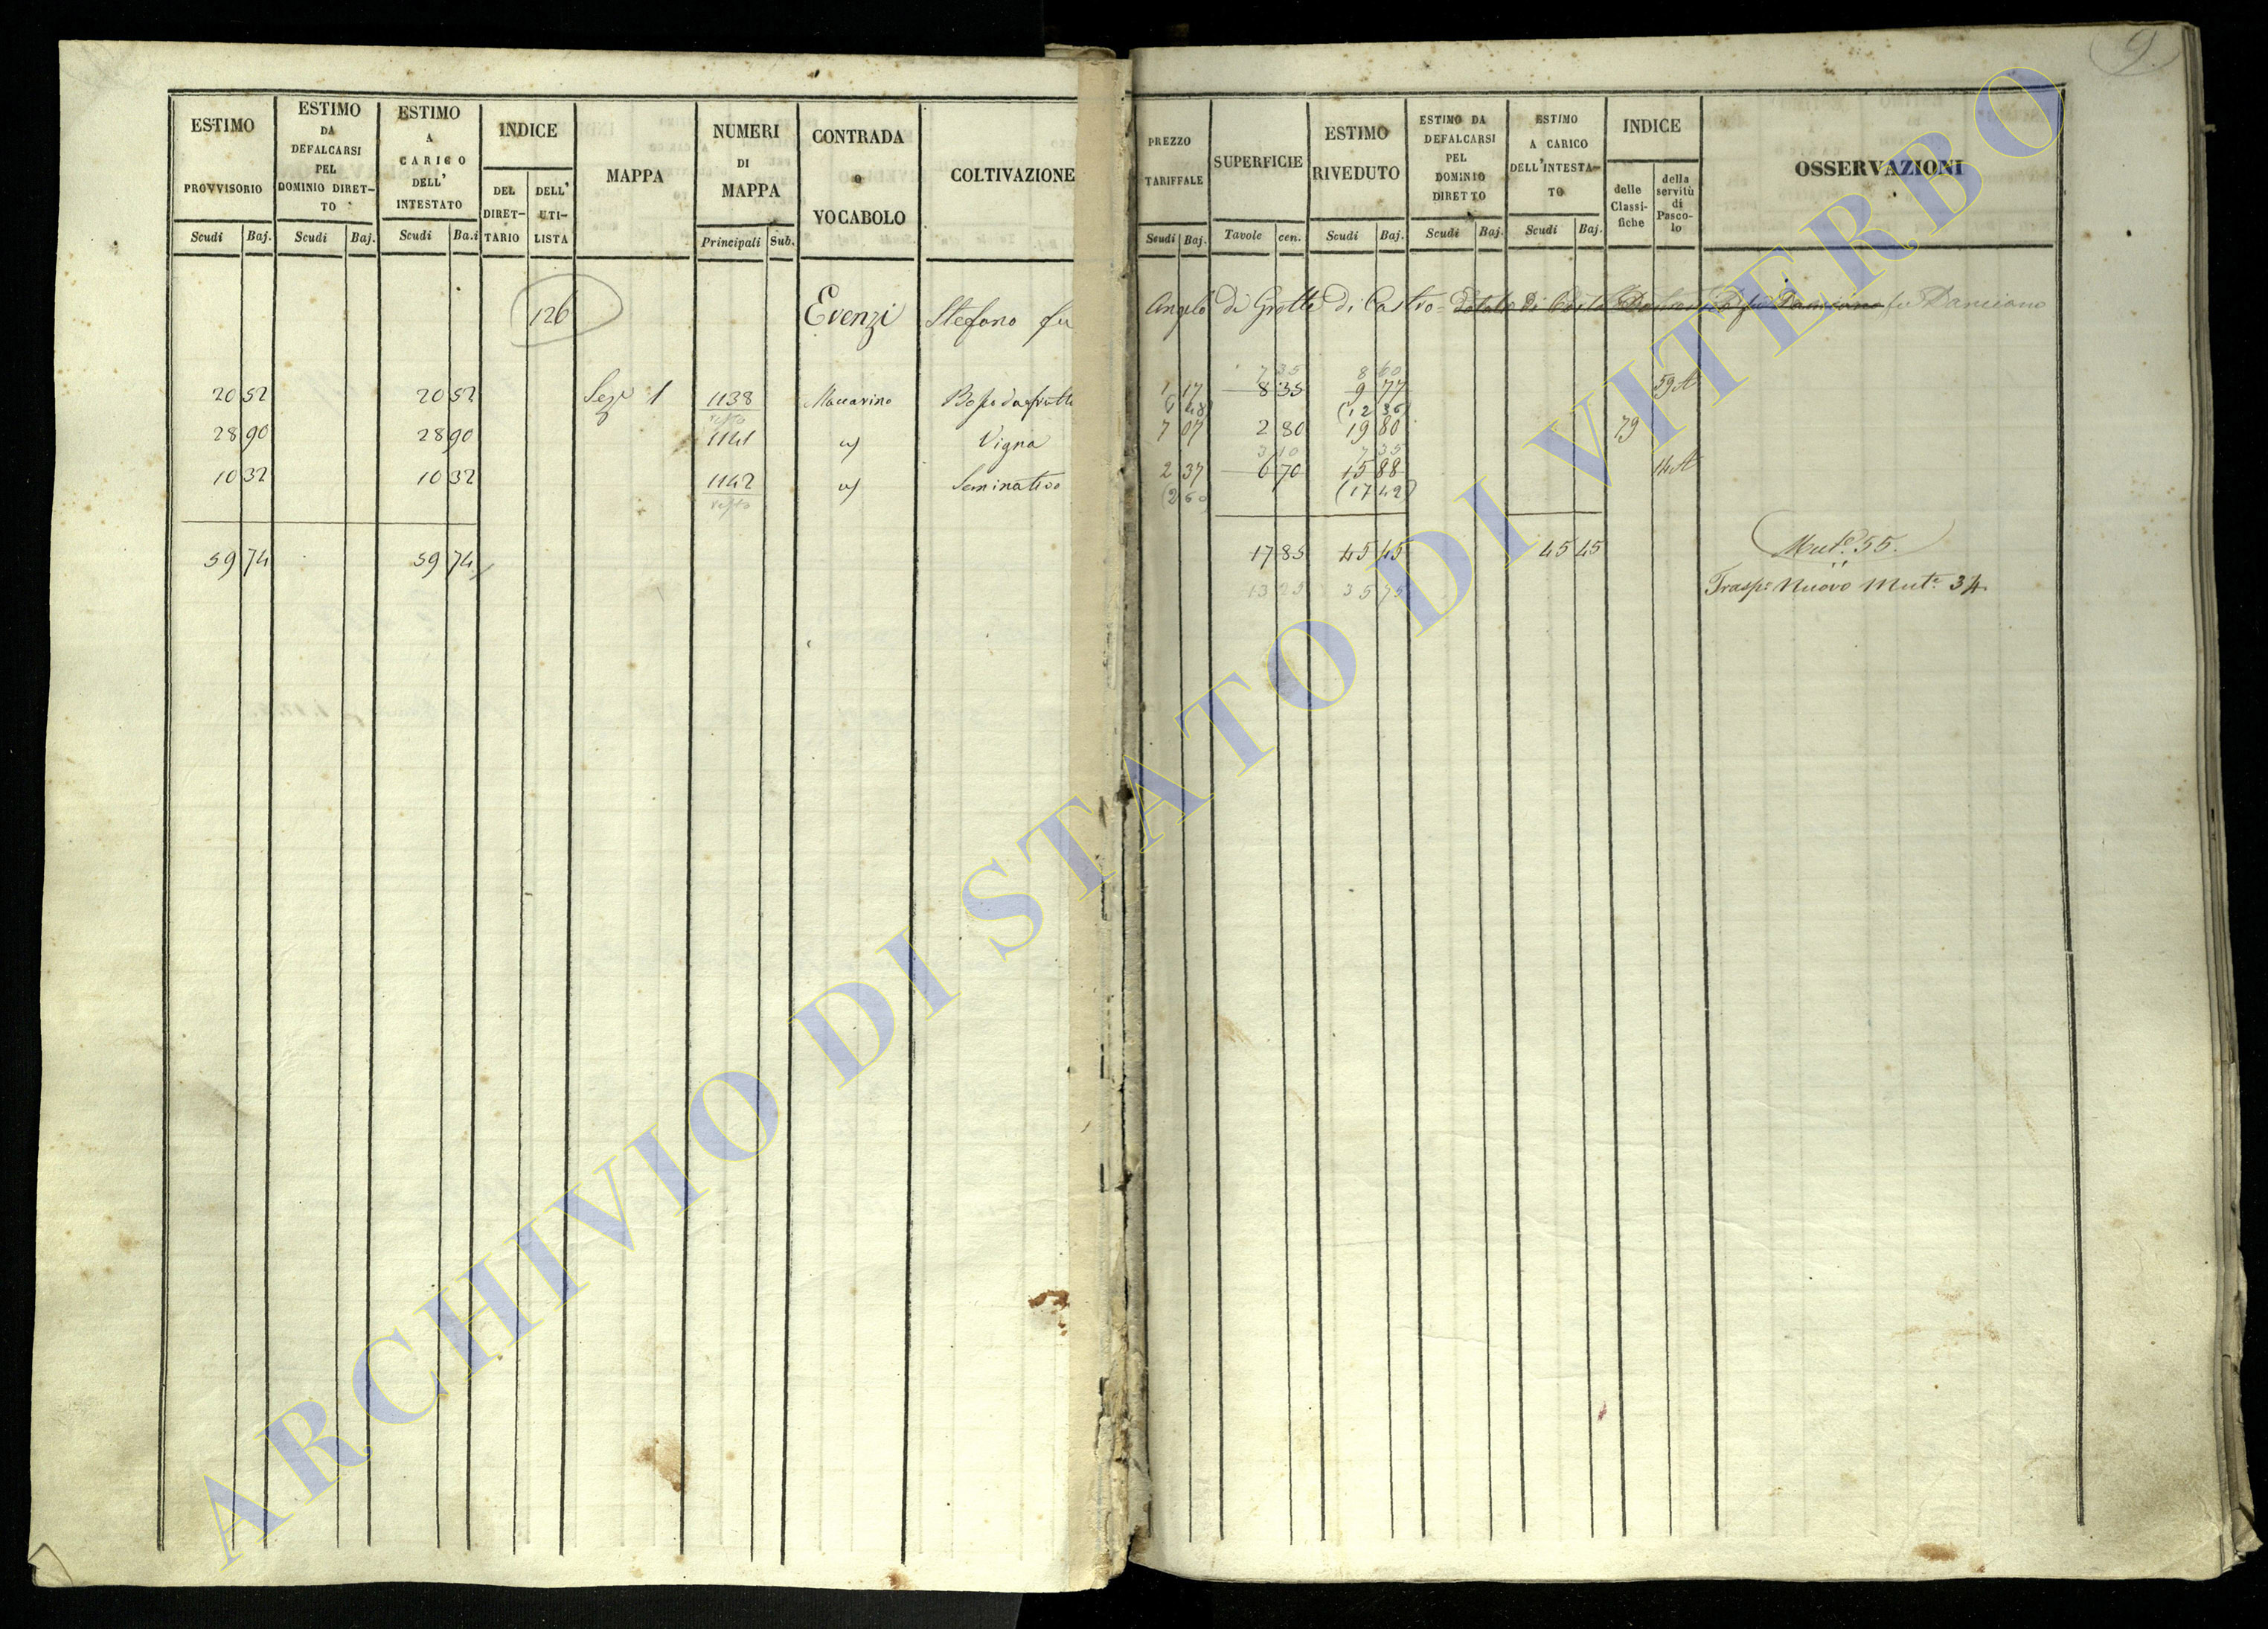 9.
ESTIMO PROVVISORIO Scudi Baj.
ESTIMO DA DEFALCARSI PEL DOMINIO DIRET- TO Scudi Baj.
ESTIMO A CARICO DELL' INTESTATO Scudi Ba.i
INDICE DEL DIRET- TARIO DELL' UTI- LISTA
MAPPA
NUMERI DI MAPPA Principali Sub.
CONTRADA e VOCABOLO
COLTIVAZIONE
PREZZO TARIFFALE Scudi Baj.
SUPERFICIE Tavole cen.
ESTIMO RIVEDUTO Scudi Baj.
ESTIMO DA DEFALCARSI PEL DOMINIO DIRETTO Scudi Baj.
ESTIMO A CARICO DELL'INTESTA- TO Scudi Baj.
INDICE delle Classi- fiche della servitù di Pasco- lo
OSSERVAZIONI
126 Evenzi Stefano fu Angelo di Grotte di Castro
7 35 8 60
20 52 20 52 Sez. 1 1138 Maccarino 1 17 8 35 9 77 59 A
resto (12 36)
28 90 28 90 1141 Vigna 7 07 2 80 19 80 79
3 10 7 35
10 32 10 32 1142 Seminativo 2 37 6 70 15 88 14 A
resto (2 60) (17 42)
59 74 59 74 17 85 45 45 45 45 Mut.e 55.
13 25 35 75 Trasp. Nuovo Mut. 34
ARCHIVIO DI STATO DI VITERBO